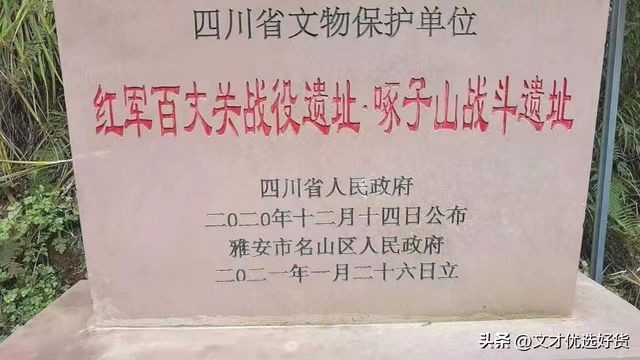 四川省文物保护单位
红军百丈关战役遗址·啄子山战斗遗址
四川省人民政府
二〇二〇年十二月十四日公布
雅安市名山区人民政府
二〇二一年一月二十六日立
头条 @文才优选好货